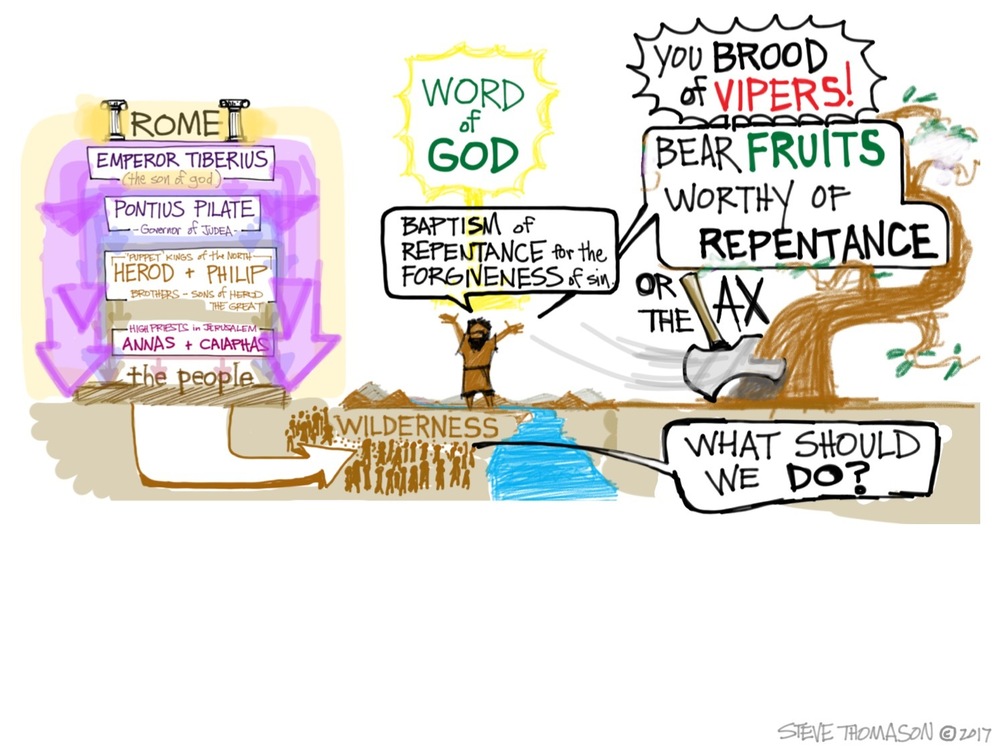 ROME
EMPEROR TIBERIUS
(the son of god)
PONTIUS PILATE
- Governor of JUDEA -
"PUPPET" KINGS of the NORTH
HEROD + PHILIP
BROTHERS - SONS of HEROD
THE GREAT
HIGH PRIESTS in JERUSALEM
ANNAS + CAIAPHAS
the people
WORD
of
GOD
BAPTISM of
REPENTANCE for the
FORGIVENESS of sin.
YOU BROOD
of VIPERS!
BEAR FRUITS
WORTHY OF
REPENTANCE
OR
THE AX
WILDERNESS
WHAT SHOULD
WE DO?
STEVE THOMASON © 2017